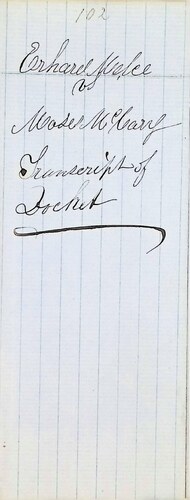 102
Erhard
vs
Moses McCary
Transcript of
Docket